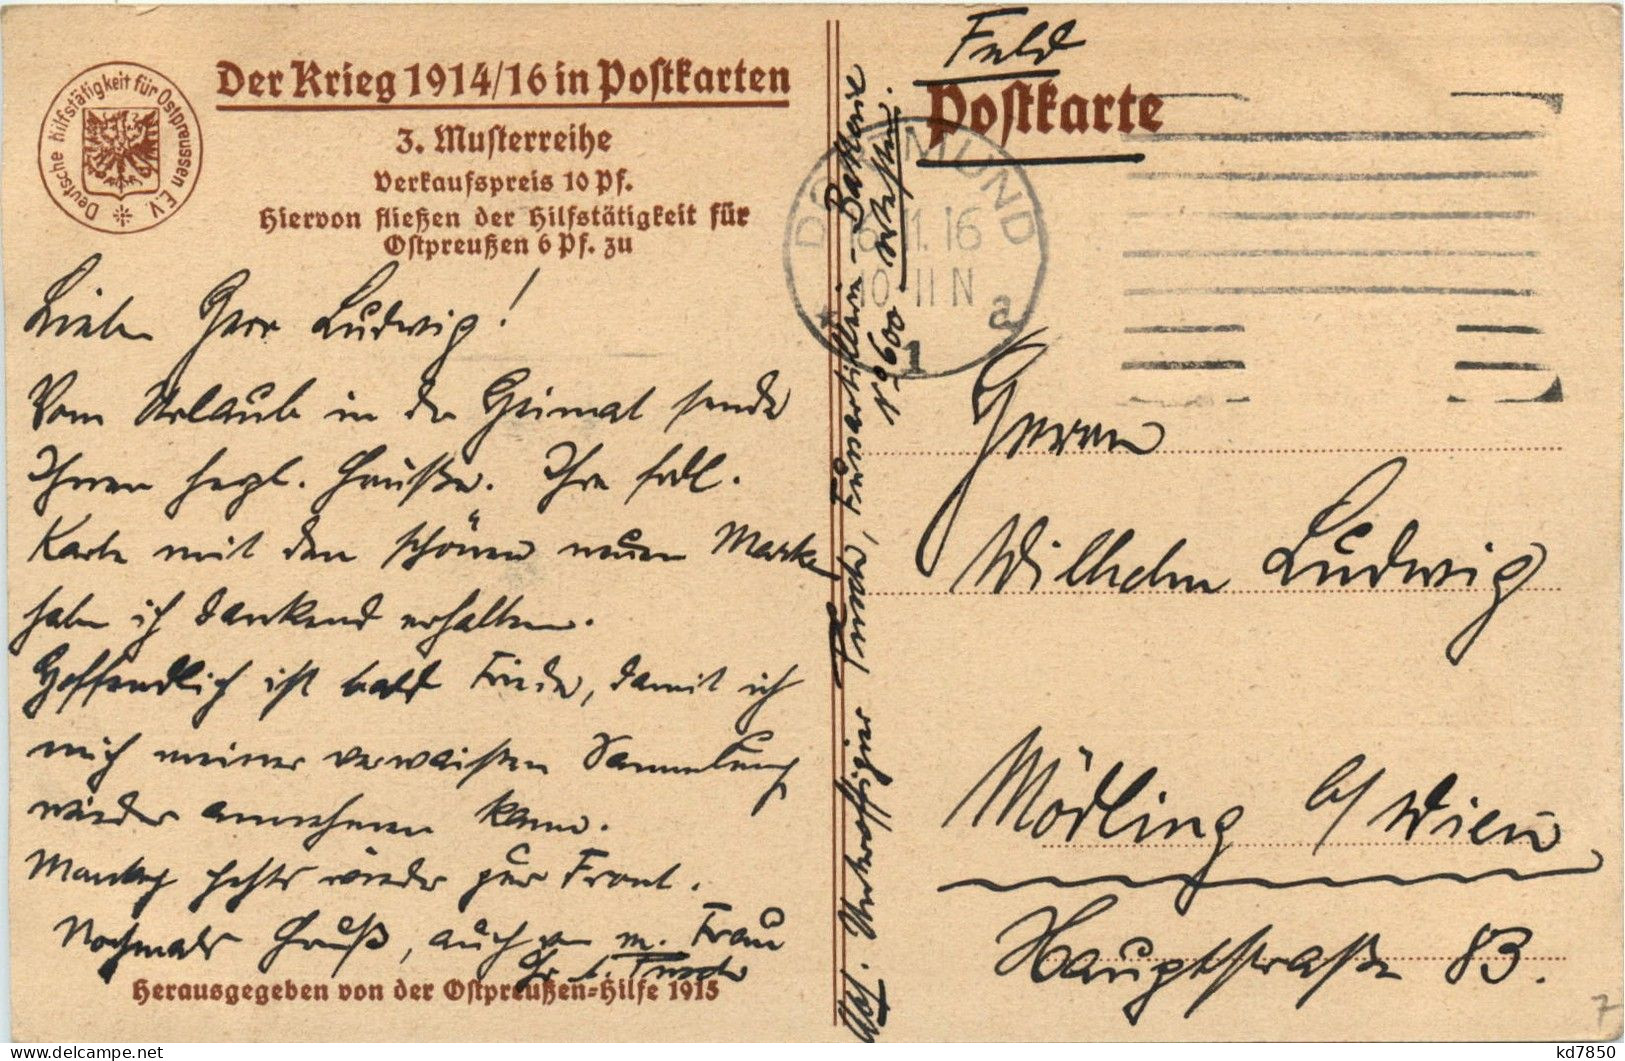 Deutsche Hilfstätigkeit für Ostpreussen E.V.
Der Krieg 1914/16 in Postkarten
3. Musterreihe
Verkaufspreis 10 Pf.
Hiervon fließen der Hilfstätigkeit für
Ostpreußen 6 Pf. zu
Lieber Herr Ludwig!
Vom Urlaub in der Heimat sende
Ihnen herzl. Grüße. Ihre frdl.
Karte mit den schönen neuen Marken
habe ich dankend erhalten.
Hoffendlich ist bald Friede, damit ich
mich meiner verwaisten Sammlung
wieder annehmen kann.
Montag gehts wieder zur Front.
Nochmals Gruß, auch von m. Frau
Ihr
Herausgegeben von der Ostpreußen-Hilfe 1915
Abs. Unteroffizier Fußartillerie-Batterie
No 600
Feld
Postkarte
DORTMUND
11.16
10-11 N
1 a
Herrn
Wilhelm Ludwig
Mödling b/ Wien
Hauptstraße 83.
7
kd7850